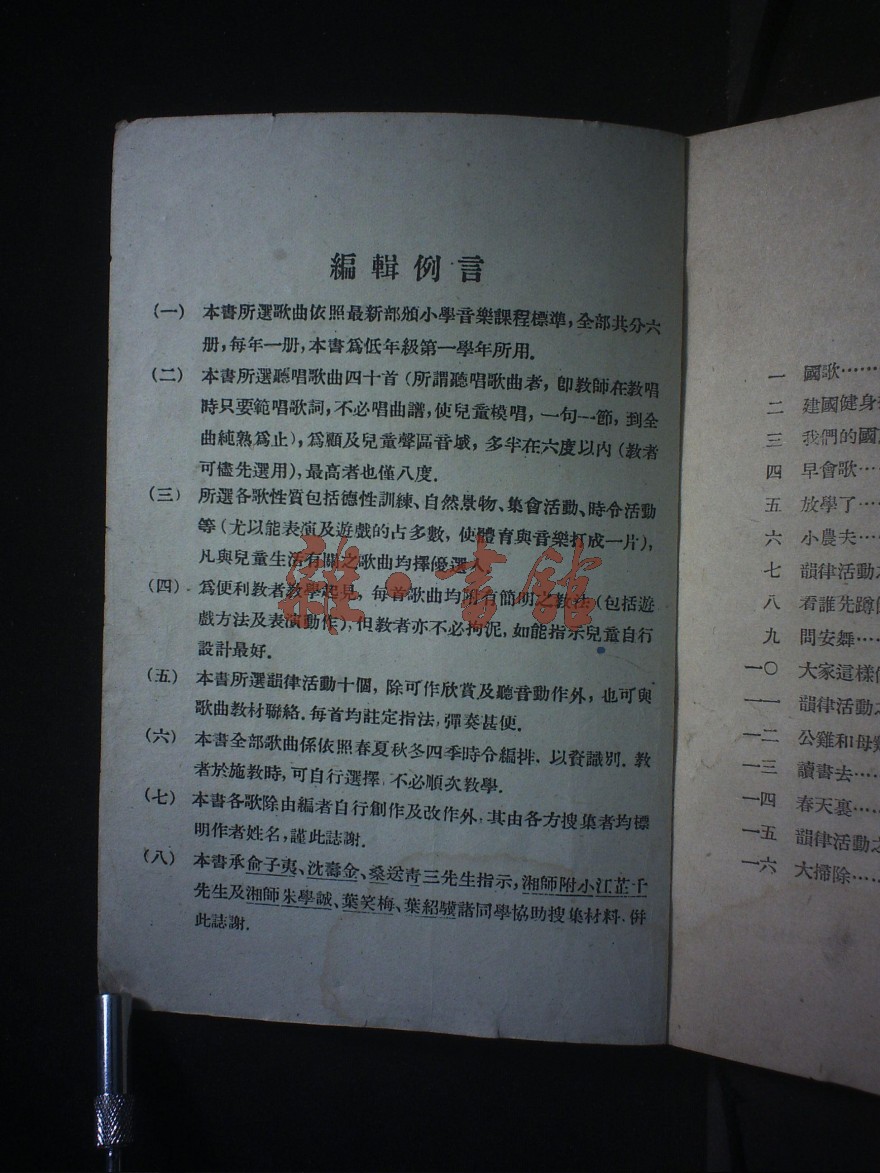 編輯例言
(一) 本書所選歌曲依照最新部頒小學音樂課程標準,全部共分六
册,每年一册,本書爲低年級第一學年所用.
(二) 本書所選聽唱歌曲四十首(所謂聽唱歌曲者,卽教師在教唱
時只要範唱歌詞,不必唱曲譜,使兒童模唱,一句一節,到全
曲純熟爲止),爲顧及兒童聲區音域,多半在六度以內(教者
可儘先選用),最高者也僅八度.
(三) 所選各歌性質包括德性訓練、自然景物、集會活動、時令活動
等(尤以能表演及遊戲的占多數,使體育與音樂打成一片),
凡與兒童生活有關之歌曲均擇優選入.
(四) 爲便利教者教學起見,每首歌曲均附有簡明之教法(包括遊
戲方法及表演動作),但教者亦不必拘泥,如能指示兒童自行
設計最好.
(五) 本書所選韻律活動十個,除可作欣賞及聽音動作外,也可與
歌曲教材聯絡.每首均註定指法,彈奏甚便.
(六) 本書全部歌曲係依照春夏秋冬四季時令編排,以資識別.教
者於施教時,可自行選擇,不必順次教學.
(七) 本書各歌除由編者自行創作及改作外,其由各方搜集者均標
明作者姓名,謹此誌謝.
(八) 本書承俞子夷、沈壽金、桑送青三先生指示,湘師附小江芷千
先生及湘師朱學誠、葉笑梅、葉紹驥諸同學協助搜集材料、倂
此誌謝.
雜·書館
一 國歌……
二 建國健身
三 我們的國
四 早會歌…
五 放學了…
六 小農夫…
七 韻律活動之
八 看誰先蹲
九 問安舞…
一〇 大家這樣
一一 韻律活動之
一二 公雞和母
一三 讀書去…
一四 春天裏…
一五 韻律活動之
一六 大掃除…